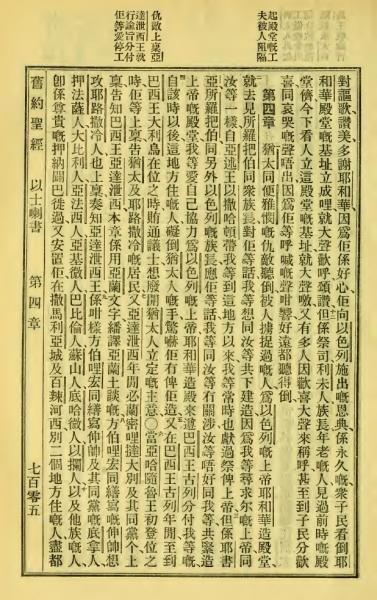 起殿堂嘅工
夫被人阻隔
仇敵上稟亞
達泄西王就
行諭旨分付
佢等愛停工
對謳歌讚美多謝耶和華因爲佢係好心佢向以色列施出嘅恩典係永久嘅衆子民看倒耶
和華殿堂嘅基址立成哩就大聲歡呼頌讚但係祭司利未人族長年老嘅人見過前時嘅殿
堂儕今下看人立這殿堂嘅基址就大聲噭又有多人因歡喜大聲來稱呼甚至到子民分歡
喜同哀哭嘅聲唔出因爲佢等呼喊嘅聲咁響好遠都聽得倒
第四章 猶太同便雅憫嘅仇敵聽倒被人擄捉過嘅人爲以色列嘅上帝耶和華造殿堂
就去見所羅把伯同衆族長對佢等話我等想同汝等共下建造因爲我等尋求尔嘅上帝同
汝等一樣自亞述王以撒哈頓帶我等到這地方以來我等常時也獻過祭俾上帝但係耶書
亞所羅把伯同另外以色列嘅族長應佢等話我等同汝等有關涉汝等唔好同我等共緊造
上帝嘅殿堂我等愛自己協力爲以色列嘅上帝耶和華造殿來遵巴西王古列分付我等嘅
自該時以後這地方住嘅人礙倒猶太人嘅手驚嚇佢冇俾佢造又在巴西王古列年間至到
巴西王大利烏在位之時賄通議士想廢開猶太人立定嘅主意〇當亞哈隨魯王初登位之
時佢等上稟告猶太及耶路撒冷嘅居民又亞達泄西年間必蘭密哩達大別及其同黨个上
稟告知巴西王亞達泄西本章係用亞蘭文字繙譯亞蘭土談嘅方伯哩宏同繕寫嘅伸帥想
攻耶路撒冷人也上稟奏知亞達泄西王係咁樣方伯哩宏同繕寫伸帥及其同黨嘅底拿人
押法薩人大比利人亞法西人亞基微人巴比倫人蘇山人底哈微人以攔人以及他族嘅人
卽係尊貴嘅押納闢巴徙過又安置佢在撒馬利亞城及百辣河西別二個地方住嘅人盡都
舊約聖經 以士喇書 第四章 七百零五